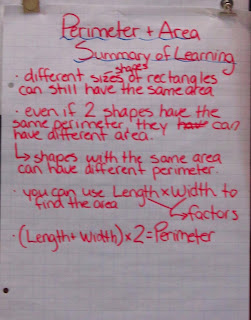 Perimeter + Area
Summary of Learning
shapes
· different sizes of rectangles
can still have the same area
· even if 2 shapes have the
same perimeter, they have can
have different area.
↳ shapes with the same area
can have different perimeter.
· you can use Length x Width to
find the area
factors
· (Length + Width) x 2 = Perimeter